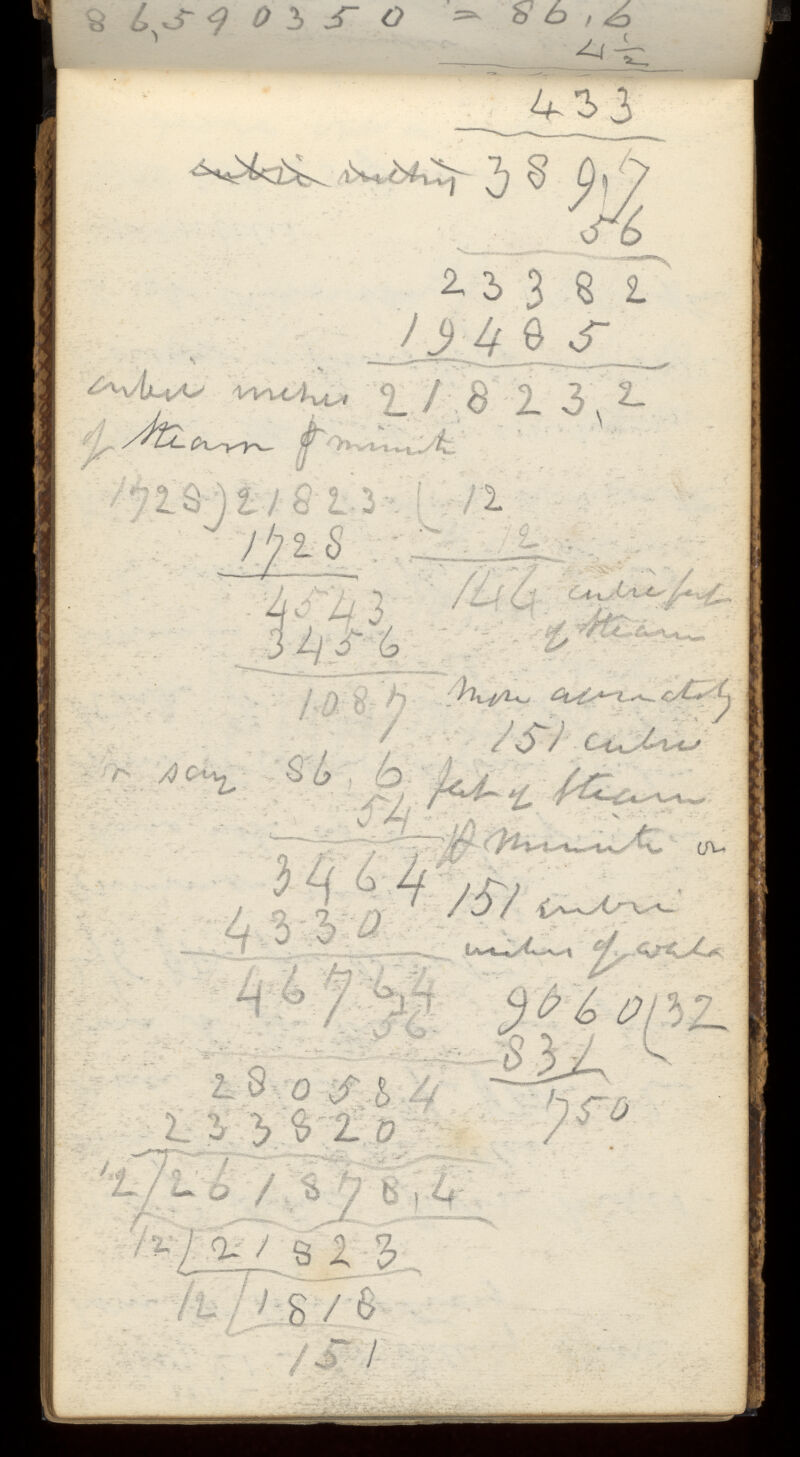 86,590350 = 86,6
4½
433
cubic inches 389,7
56
23382
19485
cubic inches 21823,2
of Steam ⅌ minute
1728)21823(12
1728 12
4543 144 cubic feet
3456 of Steam
1087 More accurately
151 cubic
or say 86,6 feet of Steam
54 ⅌ Minute or
3464 151 cubic
4330 inches of water
4676,4 9060(32
56 831
280584 750
233820
12/261878,4
12/21823
12/1818
151